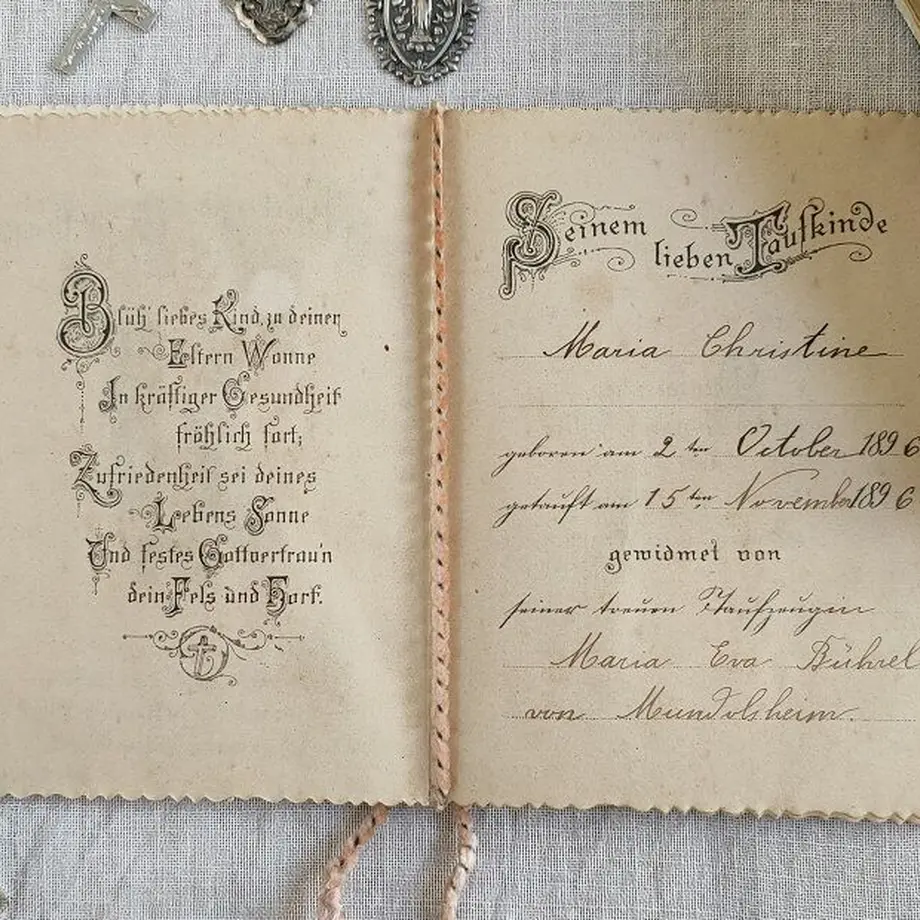 Blüh' liebes Kind, zu deiner
Eltern Wonne
In kräftiger Gesundheit
fröhlich fort;
Zufriedenheit sei deines
Lebens Sonne
Und festes Gottvertrau'n
dein Fels und Hort.
Seinem
lieben Taufkinde
Maria Christine
geboren am 2ten October 1896
getauft am 15ten November 1896
gewidmet von
seiner treuen Taufzeugin
Maria Eva Bührel
von Mundolsheim.